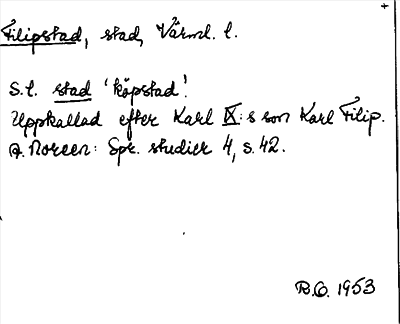 Filipstad, stad, Värml. l.
S.l. stad 'köpstad'.
Uppkallad efter Karl IX:s son Karl Filip.
A. Noreen: Spr. studier 4, s. 42.
B.O. 1953